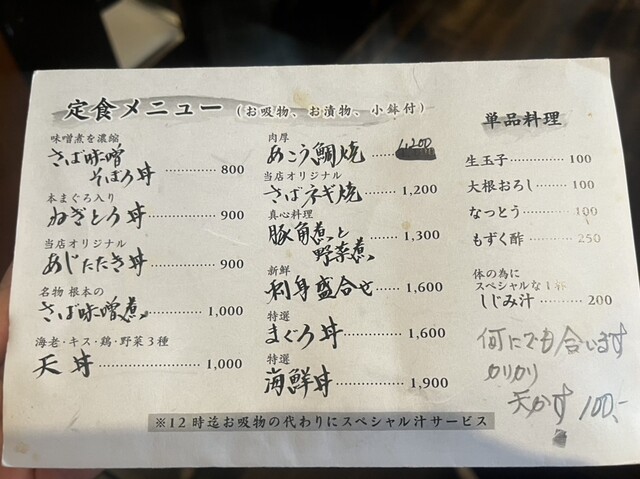 定食メニュー (お吸物、お漬物、小鉢付)
味噌煮を濃縮
さば味噌
そぼろ丼 800
本まぐろ入り
ねぎとろ丼 900
当店オリジナル
あじたたき丼 900
名物 根本の
さば味噌煮 1,000
海老・キス・鶏・野菜3種
天丼 1,000
肉厚
あこう鯛焼 1,200
当店オリジナル
さばネギ焼 1,200
真心料理
豚角煮と
野菜煮 1,300
新鮮
刺身盛合せ 1,600
特選
まぐろ丼 1,600
特選
海鮮丼 1,900
単品料理
生玉子 100
大根おろし 100
なっとう 100
もずく酢 250
体の為に
スペシャルな1杯
しじみ汁 200
何にでも合います
カリカリ
天かす 100.-
※12時迄お吸物の代わりにスペシャル汁サービス